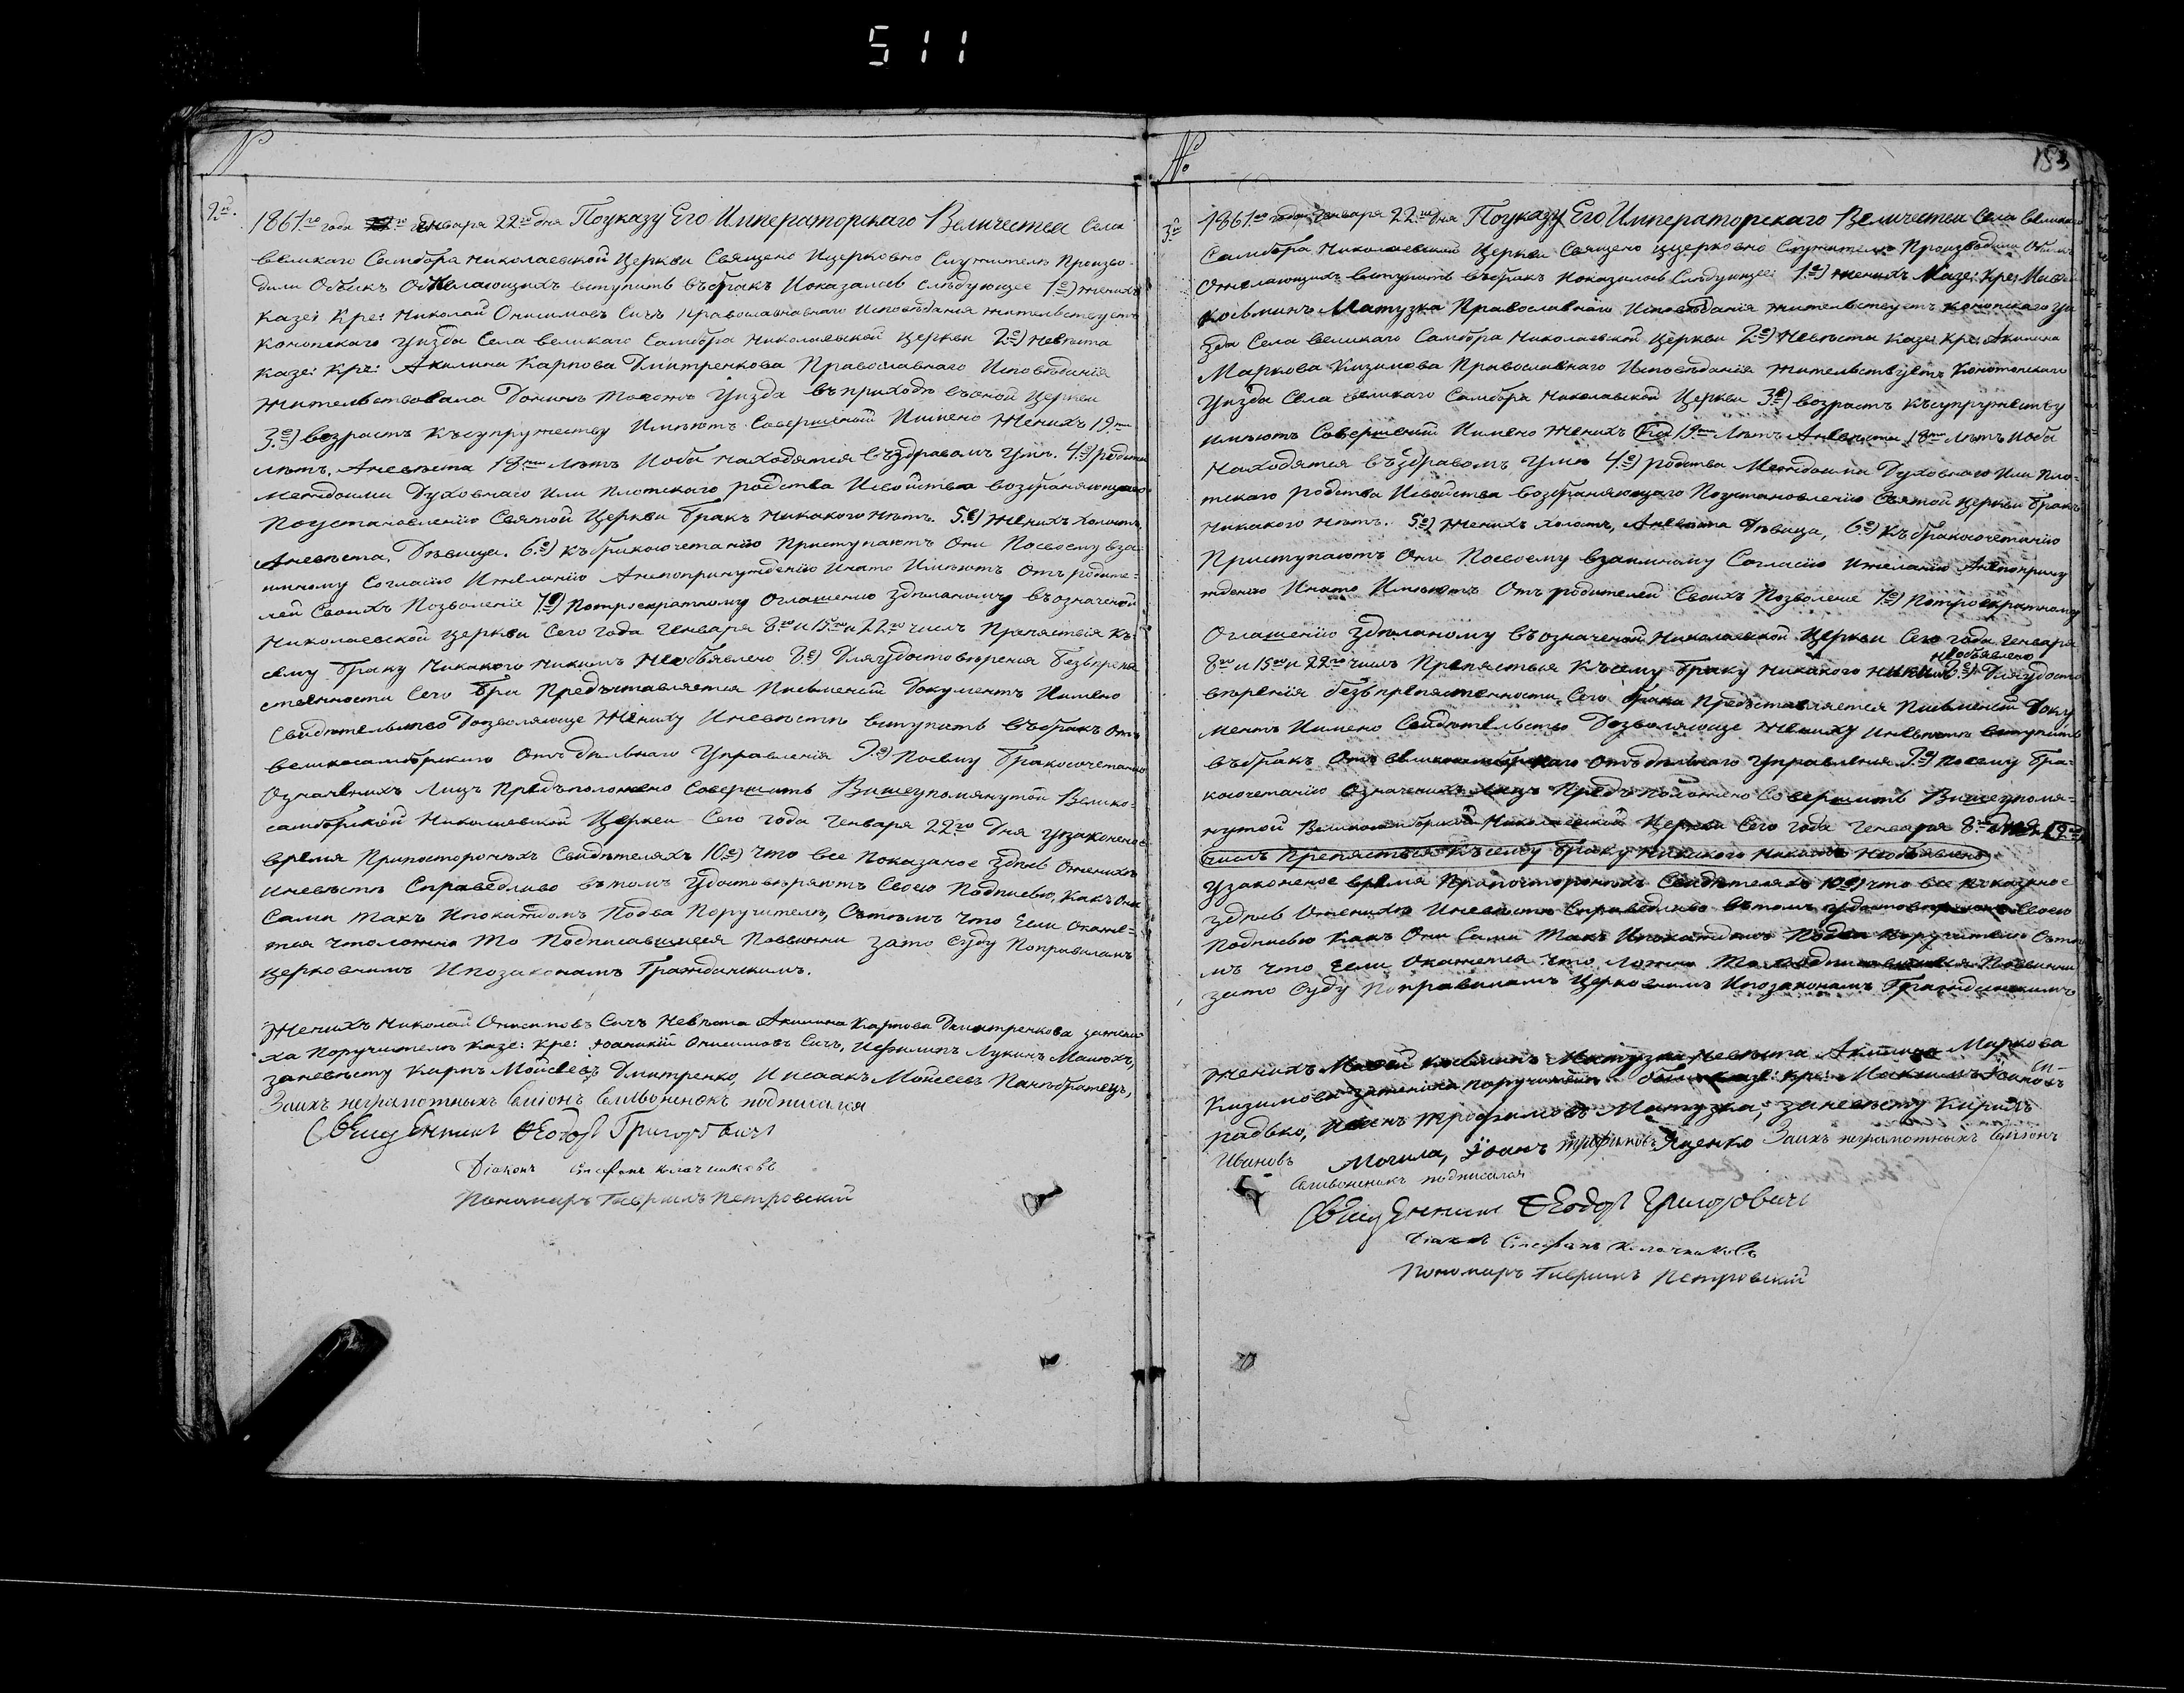 511
№
2й.
1861го года Генваря 22го дня Поуказу Его Императорскаго Величества Села
великаго Самбора Николаевской Церкви Священо Ицерковно Служители Произво-
дили Обыскъ Ожелающихъ вступить въбракъ Иоказалось слѣдующее 1е) женихъ
Казе: Кре: Николай Онисимовъ Сичъ Православнаго Исповѣданія жительствуетъ
Конопскаго Уизда Села великаго Самбора Николаевской Церкви 2е) Невѣста
Казе: Кре: Акилина Карпова Дмитренкова Православнаго Исповѣданія
жительствовала Донинѣ Тогожъ Уизда въприходѣ въоной Церкви
3е) возрастъ Късупружеству Имѣютъ Совершений Имено Женихъ 19
лѣтъ, Аневѣста 18 лѣтъ Иоба находятся въздравомъ Умѣ. 4е) родства
Междоими Духовнаго Или Плотскаго родства Исвойства возбраняющаго
Поустановленію Святой Церкви Бракъ Никакого нѣтъ. 5е) Женихъ холостъ,
Аневѣста, Дѣвица. 6е) Къбракосочетанію Приступаютъ Они Посвоему вза-
имному Согласію Ижеланію Анепопринужденію Инато Имѣютъ Отъ родите-
лей Своихъ Позволеніе 7е) Потроекратному Оглашению Здѣланому въозначеной
Николаевской Церкви Сего года Генваря 8го и 15го и 22го числъ Препяствія Къ
сему браку Никакого Никимъ Необъявлено 8е) Дляудостовѣрения безъпрепя
ственности Сего Бра Предъставляется Письмений Документъ Имено
Свидѣтельство Дозволяюще Жениху Иневѣстѣ вступать въбракъ Отъ
великосамборскаго Отъдѣльнаго Управленія 9е) Посему Бракосочетанію
Означенихъ Лицъ Предъположено Совершить Вишеупомянутой Велико-
самборской Николаевской Церкви Сего года Генваря 22го Дня Узаконеное
время Припосторонъхъ Свидѣтеляхъ 10е) Что все Показаное Здѣсь Оженихѣ
Иневѣстѣ Справедливо вътомъ Удостовѣряютъ Своею Подписью, Какъ Они
Сами Такъ Ипокаждомъ Подва Поручителя, Сътѣмъ Что Если Окаже-
тся Чтоложно То Подписавшиеся Повинни Зато Суду Поправиламъ
Церковнимъ Ипозаконамъ Гражданскимъ.
Женихъ Николай Онисимовъ Сичъ Невѣста Акилина Карпова Дмитренкова зажени
ха Поручители Казе: Кре: Иоаникій Онисимовъ Сичъ, Лукинъ
заневѣсту Карпъ Мойсеевъ Дмитренко, И Исаакъ Мойсеевъ Панъбратецъ,
Заихъ неграмотныхъ Семіонъ Сливоненокъ подписался
Священникъ Ѳеодоръ Григоровичъ
Діаконъ Стефанъ Колачниковъ
Пономарь Гавриилъ Петровскій
№
153
3й
1861го года Генваря 22го дня Поуказу Его Императорскаго Величества Села Великаго
Самбора Николаевской Церкви Священо Ицерковно Служители Произъводили Обыскъ
Ожелающихъ вступить въбракъ Ноказалось Слѣдующее 1е) женихъ Казе: Кре:
Косьминъ Матузка Православнаго Исповѣданія жительствуетъ Конопскаго Уи
зда Села великаго Самбора Николаевской Церкви 2е) Невѣста Казе: Кре: Акилина
Маркова Кизимова Православнаго Исповѣданія жительствуетъ Конотопскаго
Уизда Села великаго Самбора Николаевской Церкви 3е) возрастъ Късупружеству
имѣютъ Совершений Имено Женихъ 19 Лѣтъ Аневѣста 18 лѣтъ Иоба
Находятся въздравомъ Умѣ 4е) родства Междоими Духовнаго Или Пло-
тскаго родства Исвойства возбраняющаго Поустановленію Святой Церкви Бракъ
Никакого нѣтъ. 5е) Женихъ холостъ, Аневѣста Дѣвица, 6е) Къбракосочетанію
Приступаютъ Они Посвоему взаимному Согласію Ижеланію Анепоприну
жденію Инато Имѣютъ Отъ родителей Своихъ Позволение 7е) Потроекратному
Оглашенію Здѣланому въозначеной Николаевской Церкви Сего года Генваря
Необъявлено
8го и 15го и 22го числъ Препяствія Късему браку Никакого Никимъ 8е) Дляудосто
вѣренія безъпрепяственности Сего брака Предъставляется Письмений Доку
ментъ Имено Свидѣтельство Дозволяюще Жениху Иневѣстѣ вступить
въбракъ Отъ великосамборскаго Отъдѣльнаго Управления 9е) Посему Бра-
косочетанію Означенихъ Лицъ Предъположено Совершить Вишеупомя-
нутой Великосамборской Николаевской Церкви Сего года Генваря
числъ Препяствія Късему браку Никакого Никимъ Необъявлено
Узаконеное время Припостороннихъ Свидѣтеляхъ 10е) что все Показаное
здѣсь Оженихѣ Иневѣстѣ Справедливо вътомъ удостовѣряютъ Своею
Подписью Какъ Они Сами Такъ Ипокаждомъ Подва Поручителя Сътѣ
мъ что Если Окажется Что Ложно То Подписавшиеся Повинни
зато Суду Поправиламъ Церковнимъ Ипозаконамъ Гражданскимъ
Женихъ Косьминъ Матузка Невѣста Акилина Маркова
Кизимова зажениха Поручители Казе: Кре: Максимъ Иоановъ Сп-
радько, Трофимовъ Матузка, заневѣсту Кирилъ
Ивановъ Могила, Іоанъ Трофимовъ Яценко Заихъ неграмотныхъ Семіонъ
Сливоненокъ подписался
Священникъ Ѳеодоръ Григоровичъ
Діаконъ Стефанъ Колачниковъ
Пономарь Гавриилъ Петровскій